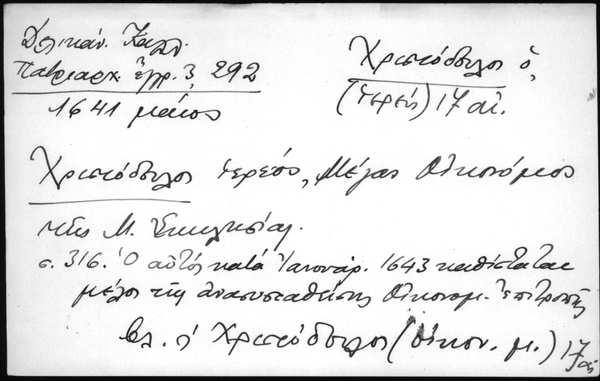 Δελικάν. Καλλ.
Πατριαρχ. ἔγγρ. 3, 292
1641 μάιος
Χριστόδουλος ὁ,
(ἱερεύς) 17 αἰ.
Χριστόδουλος ἱερεύς, Μέγας Οἰκονόμος
τῆς Μ. Ἐκκλησίας.
σ. 316. Ὁ αὐτός κατά Ἰανουάρ. 1643 καθίσταται
μέλος τῆς ἀνασυσταθείσης Οἰκονομ. Ἐπιτροπῆς
Βλ. Χριστόδουλος (οἰκον. μ.) 17 αἰ.